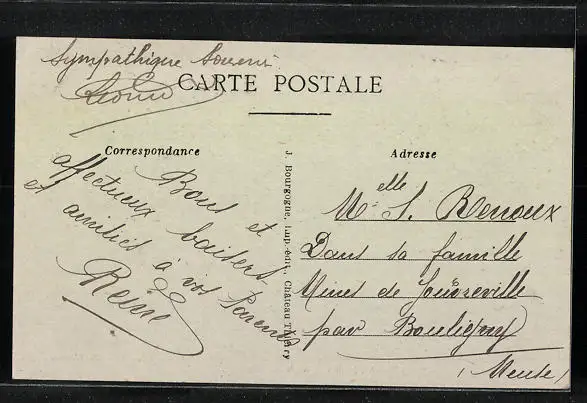 Sympathique Souvenir
Léonie
CARTE POSTALE
Correspondance
Bons et
affectueux baisers,
et amitiés à vos Parents
Reine
J. Bourgogne, Imp.-édit., Château Thierry
Adresse
Melle S. Renoux
Dans sa famille
Mines de Joudreville
par Bouligny
(Meuse)